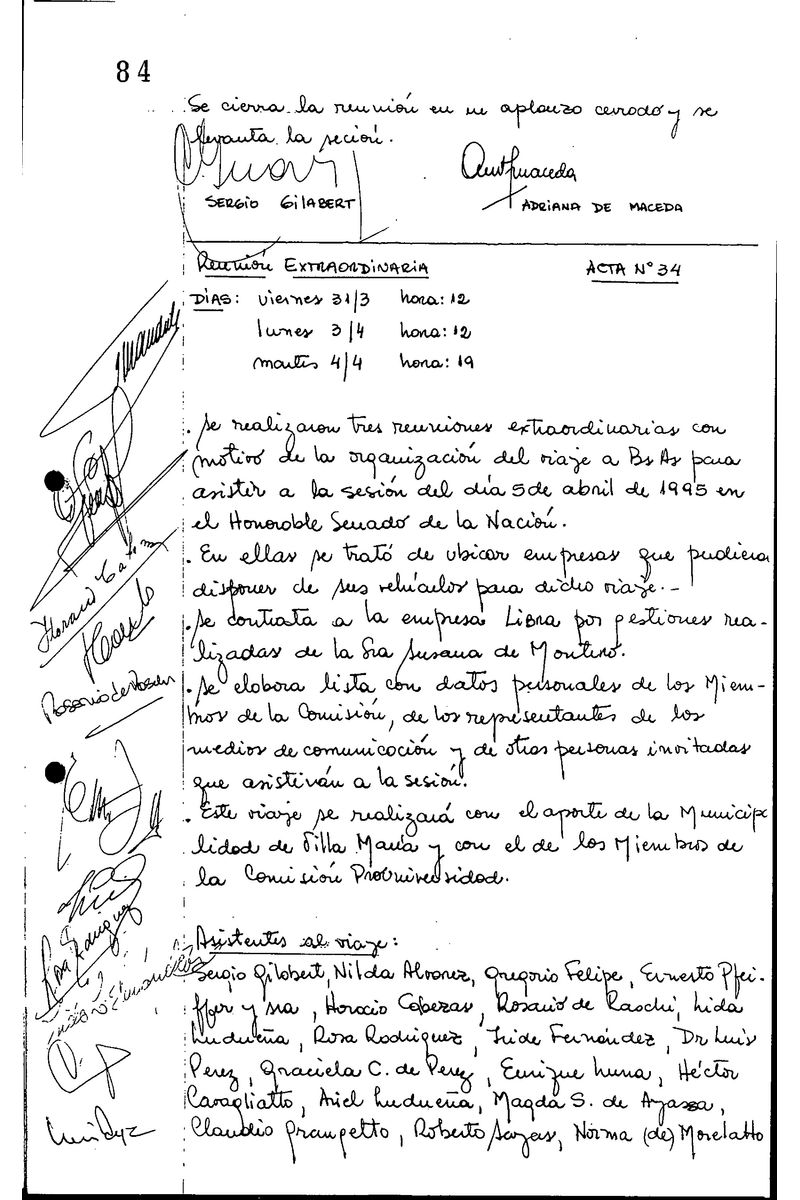 84
Se cierra la reunión en un aplauzo cerrado y se
levanta la seción.
SERGIO GILABERT
ADRIANA DE MACEDA
Reunión EXTRAORDINARIA ACTA N° 34
DÍAS: viernes 31/3 hora: 12
lunes 3/4 hora: 12
martes 4/4 hora: 19
. Se realizaron tres reuniones extraordinarias con
motivo de la organización del viaje a Bs As para
asistir a la sesión del día 5 de abril de 1995 en
el Honorable Senado de la Nación.
. En ellas se trató de ubicar empresas que pudiera
disponer de sus vehículos para dicho viaje.-
. Se contrata a la empresa Libra por gestiones rea-
lizadas de la Sra Susana de Montero.
. Se elabora lista con datos personales de los Miem-
bros de la Comisión, de los representantes de los
medios de comunicación y de otras personas invitadas
que asistirán a la sesión.
. Este viaje se realizará con el aporte de la Municipa
lidad de Villa María y con el de los Miembros de
la Comisión Prouniversidad.
Asistentes al viaje:
Sergio Gilabert, Nilda Alvarez, Gregorio Felipe, Ernesto Pfei-
ffer y sra, Horacio Cabezas, Rosario de Raschi, Lida
Ludueña, Rosa Rodriguez, Fernández, Dr Luis
Perez, Graciela C. de Perez, Enrique Luna, Héctor
Cavagliatto, Ariel Ludueña, Magda S. de Ayassa,
Claudio Grangetto, Roberto Sayas, Norma (de) Morelatto
Rosa Rodriguez